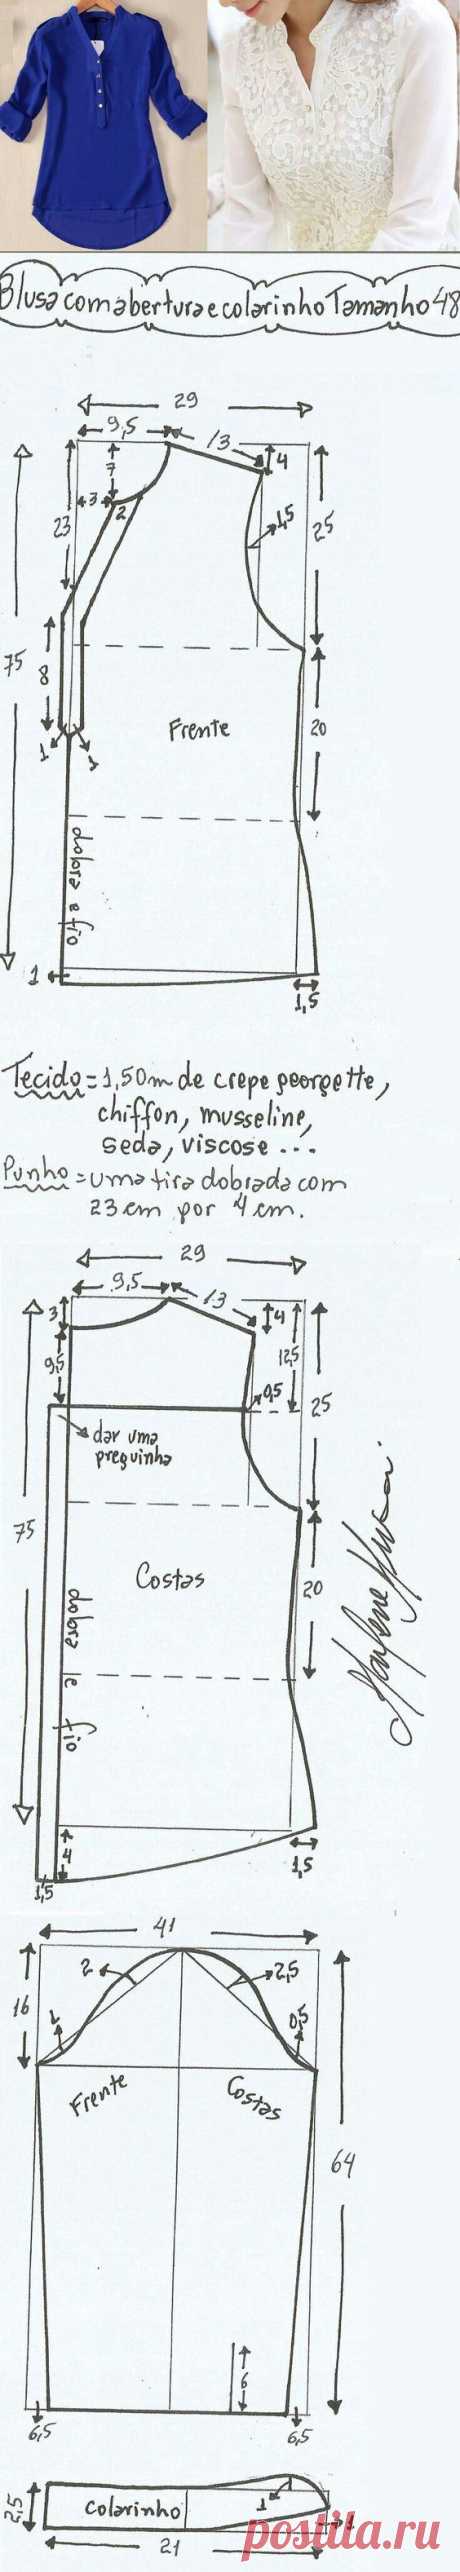 Blusa com abertura e colarinho Tamanho 48
29
9,5
13
7
4
3
2
23
1,5
25
75
8
1
1
Frente
20
dobra e fio
1
1,5
Tecido = 1,50m de crepe georgette,
chiffon, musseline,
seda, viscose ...
Punho = uma tira dobrada com
23 cm por 4 cm.
29
9,5
13
3
4
12,5
9,5
0,5
25
dar uma
preguinha
75
Costas
20
dobra e fio
4
1,5
1,5
Marlene Mukai
41
2
2,5
16
1
0,5
Frente
Costas
64
6
6,5
6,5
2,5
Colarinho
1
1
21
postila.ru